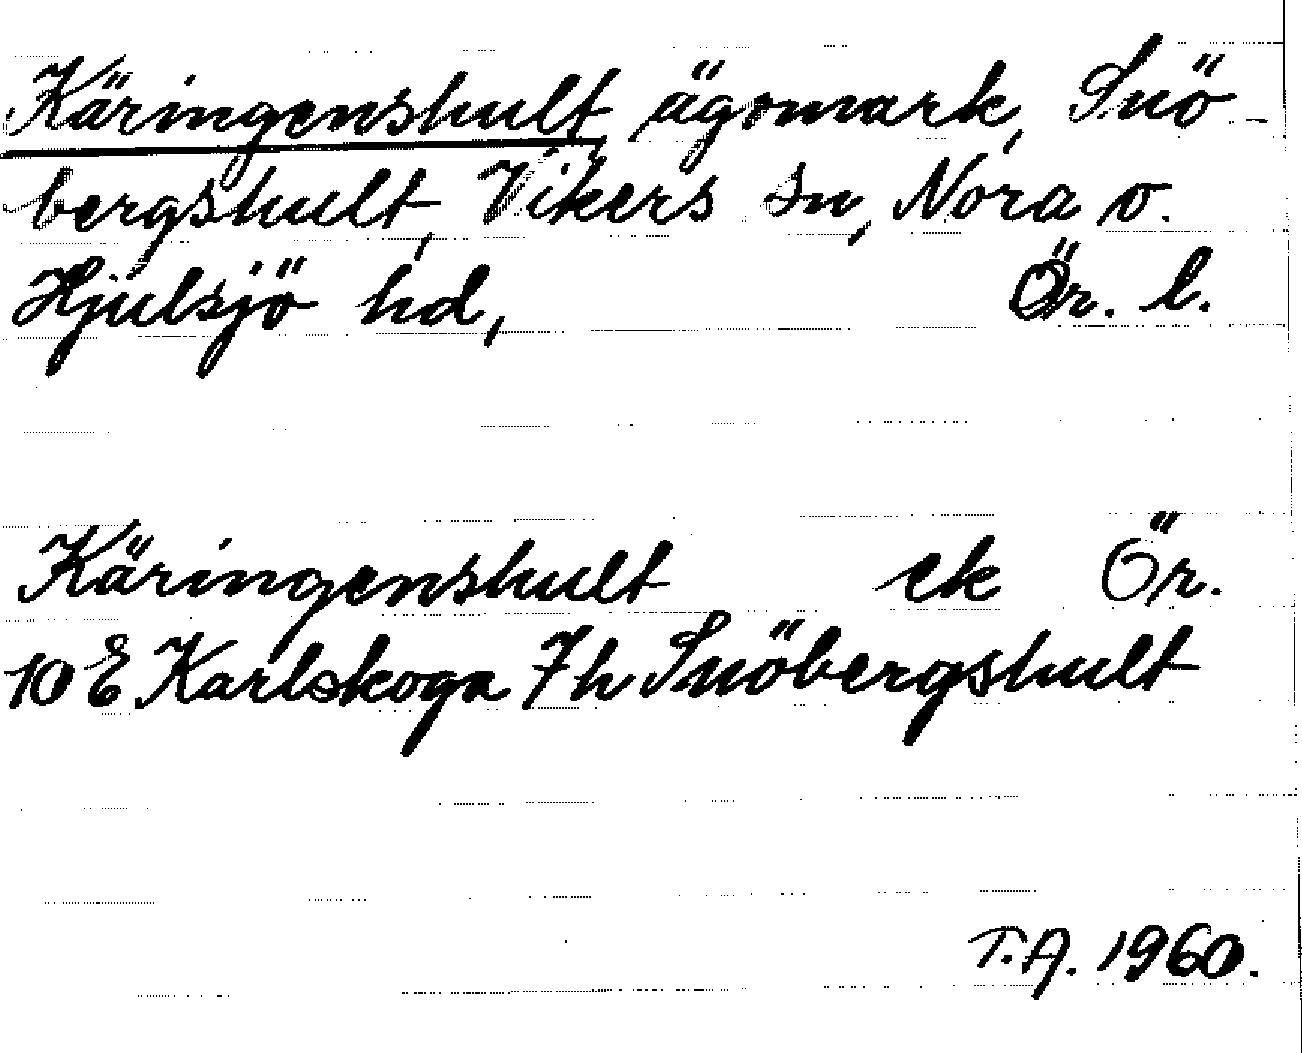 Käringenshult, ägomark, Snö-
bergshult, Vikers sn, Nora o.
Hjulsjö hd, Ör. l.
Käringenshult ek Ör.
10 E Karlskoga 7h Snöbergshult
T.A. 1960.